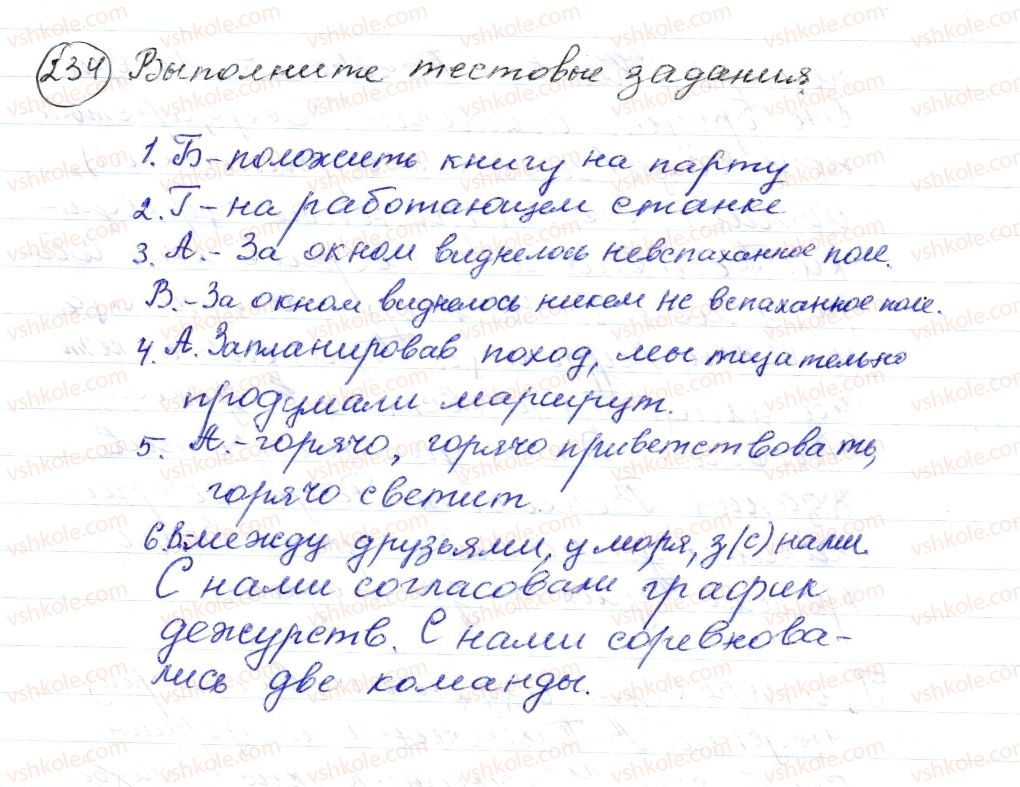 234 Выполните тестовые задания
1. Б - положить книгу на парту
2. Г - на работающем станке
3. А. - За окном виднелось невспаханное поле.
В. - За окном виднелось никем не вспаханное поле.
4. А. Запланировав поход, мы тщательно
продумали маршрут.
5. А. - горячо, горячо приветствовать,
горячо светит
6. В. - между друзьями, у моря, з/(с) нами.
С нами согласовали график
дежурств. С нами соревнова-
лись две команды.